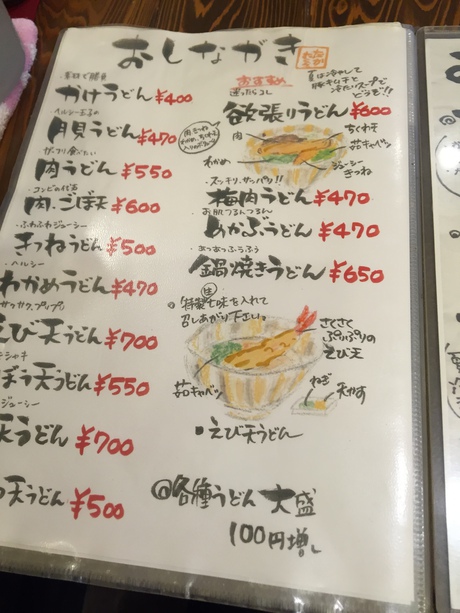 おしながき
素材で勝負
かけうどん ¥400
ヘルシー玉子の
月見うどん ¥470
ガッツリ食べたい
肉うどん ¥550
コンビの代名
肉、ごぼ天 ¥600
ふわふわジューシー
きつねうどん ¥500
ヘルシー
わかめうどん ¥470
えび天うどん ¥700
ぼう天うどん ¥550
ジューシー
天うどん ¥700
天うどん ¥500
夏は冷やして
豚キムチと
冷たいスープで
どうぞ!!
おすすめ
迷ったらコレ
欲張りうどん ¥600
肉 きつね
わかめ
肉
ちくわ天
茹キャベツ
わかめ
ジューシー
きつね
スッキリ、サッパリ!!
梅肉うどん ¥470
お肌つるんつるん
めかぶうどん ¥470
あつあつふうふう
鍋焼きうどん ¥650
特製 生 七味を入れて
召しあがり下さいっ
さくさく
ぷりぷりの
えび天
茹キャベツ
ねぎ
天かす
えび天うどん
@各種うどん 大盛
100円増し